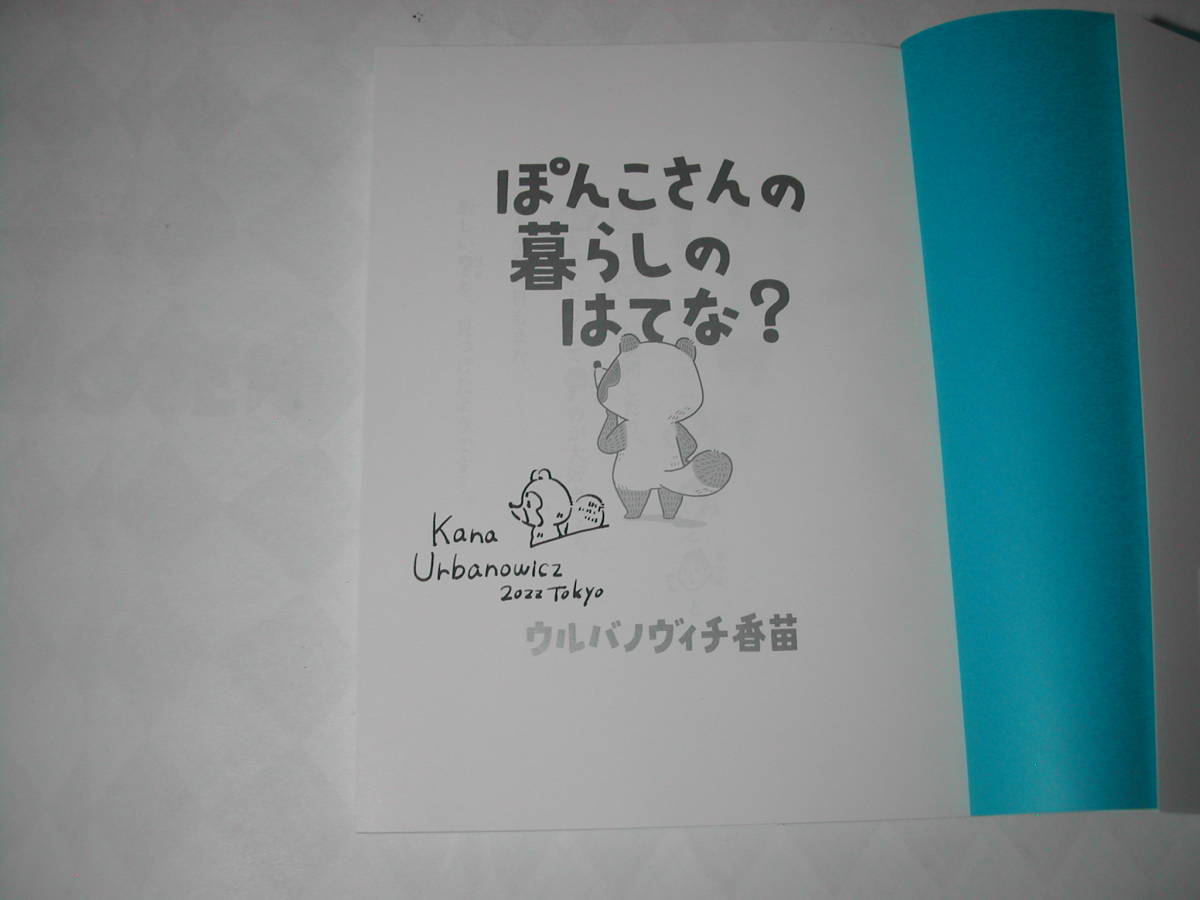 ぽんこさんの
暮らしの
はてな?
Kana
Urbanowicz
2022 Tokyo
ウルバノヴィチ香苗